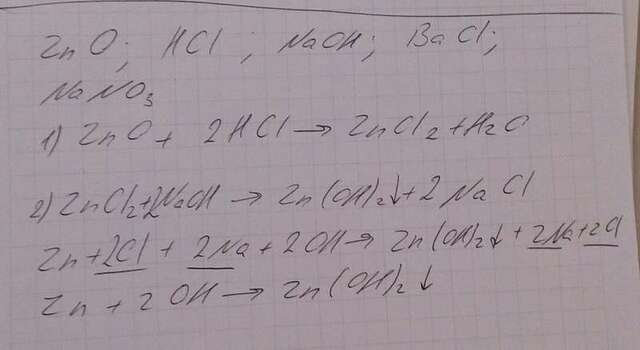 ZnO; HCl; NaOH; BaCl;
NaNO₃
1) ZnO + 2HCl → ZnCl₂ + H₂O
2) ZnCl₂+2NaOH → Zn(OH)₂↓ + 2NaCl
Zn+2Cl + 2Na + 2OH → Zn(OH)₂↓ + 2Na + 2Cl
Zn + 2OH → Zn(OH)₂↓